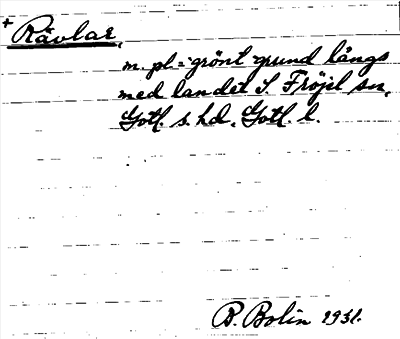 + Rävlar,
m. pl = grönt grund långs
med landet I. Fröjel sn,
Gotl. s. hd, Gotl. l.
B. Bolin 1931.